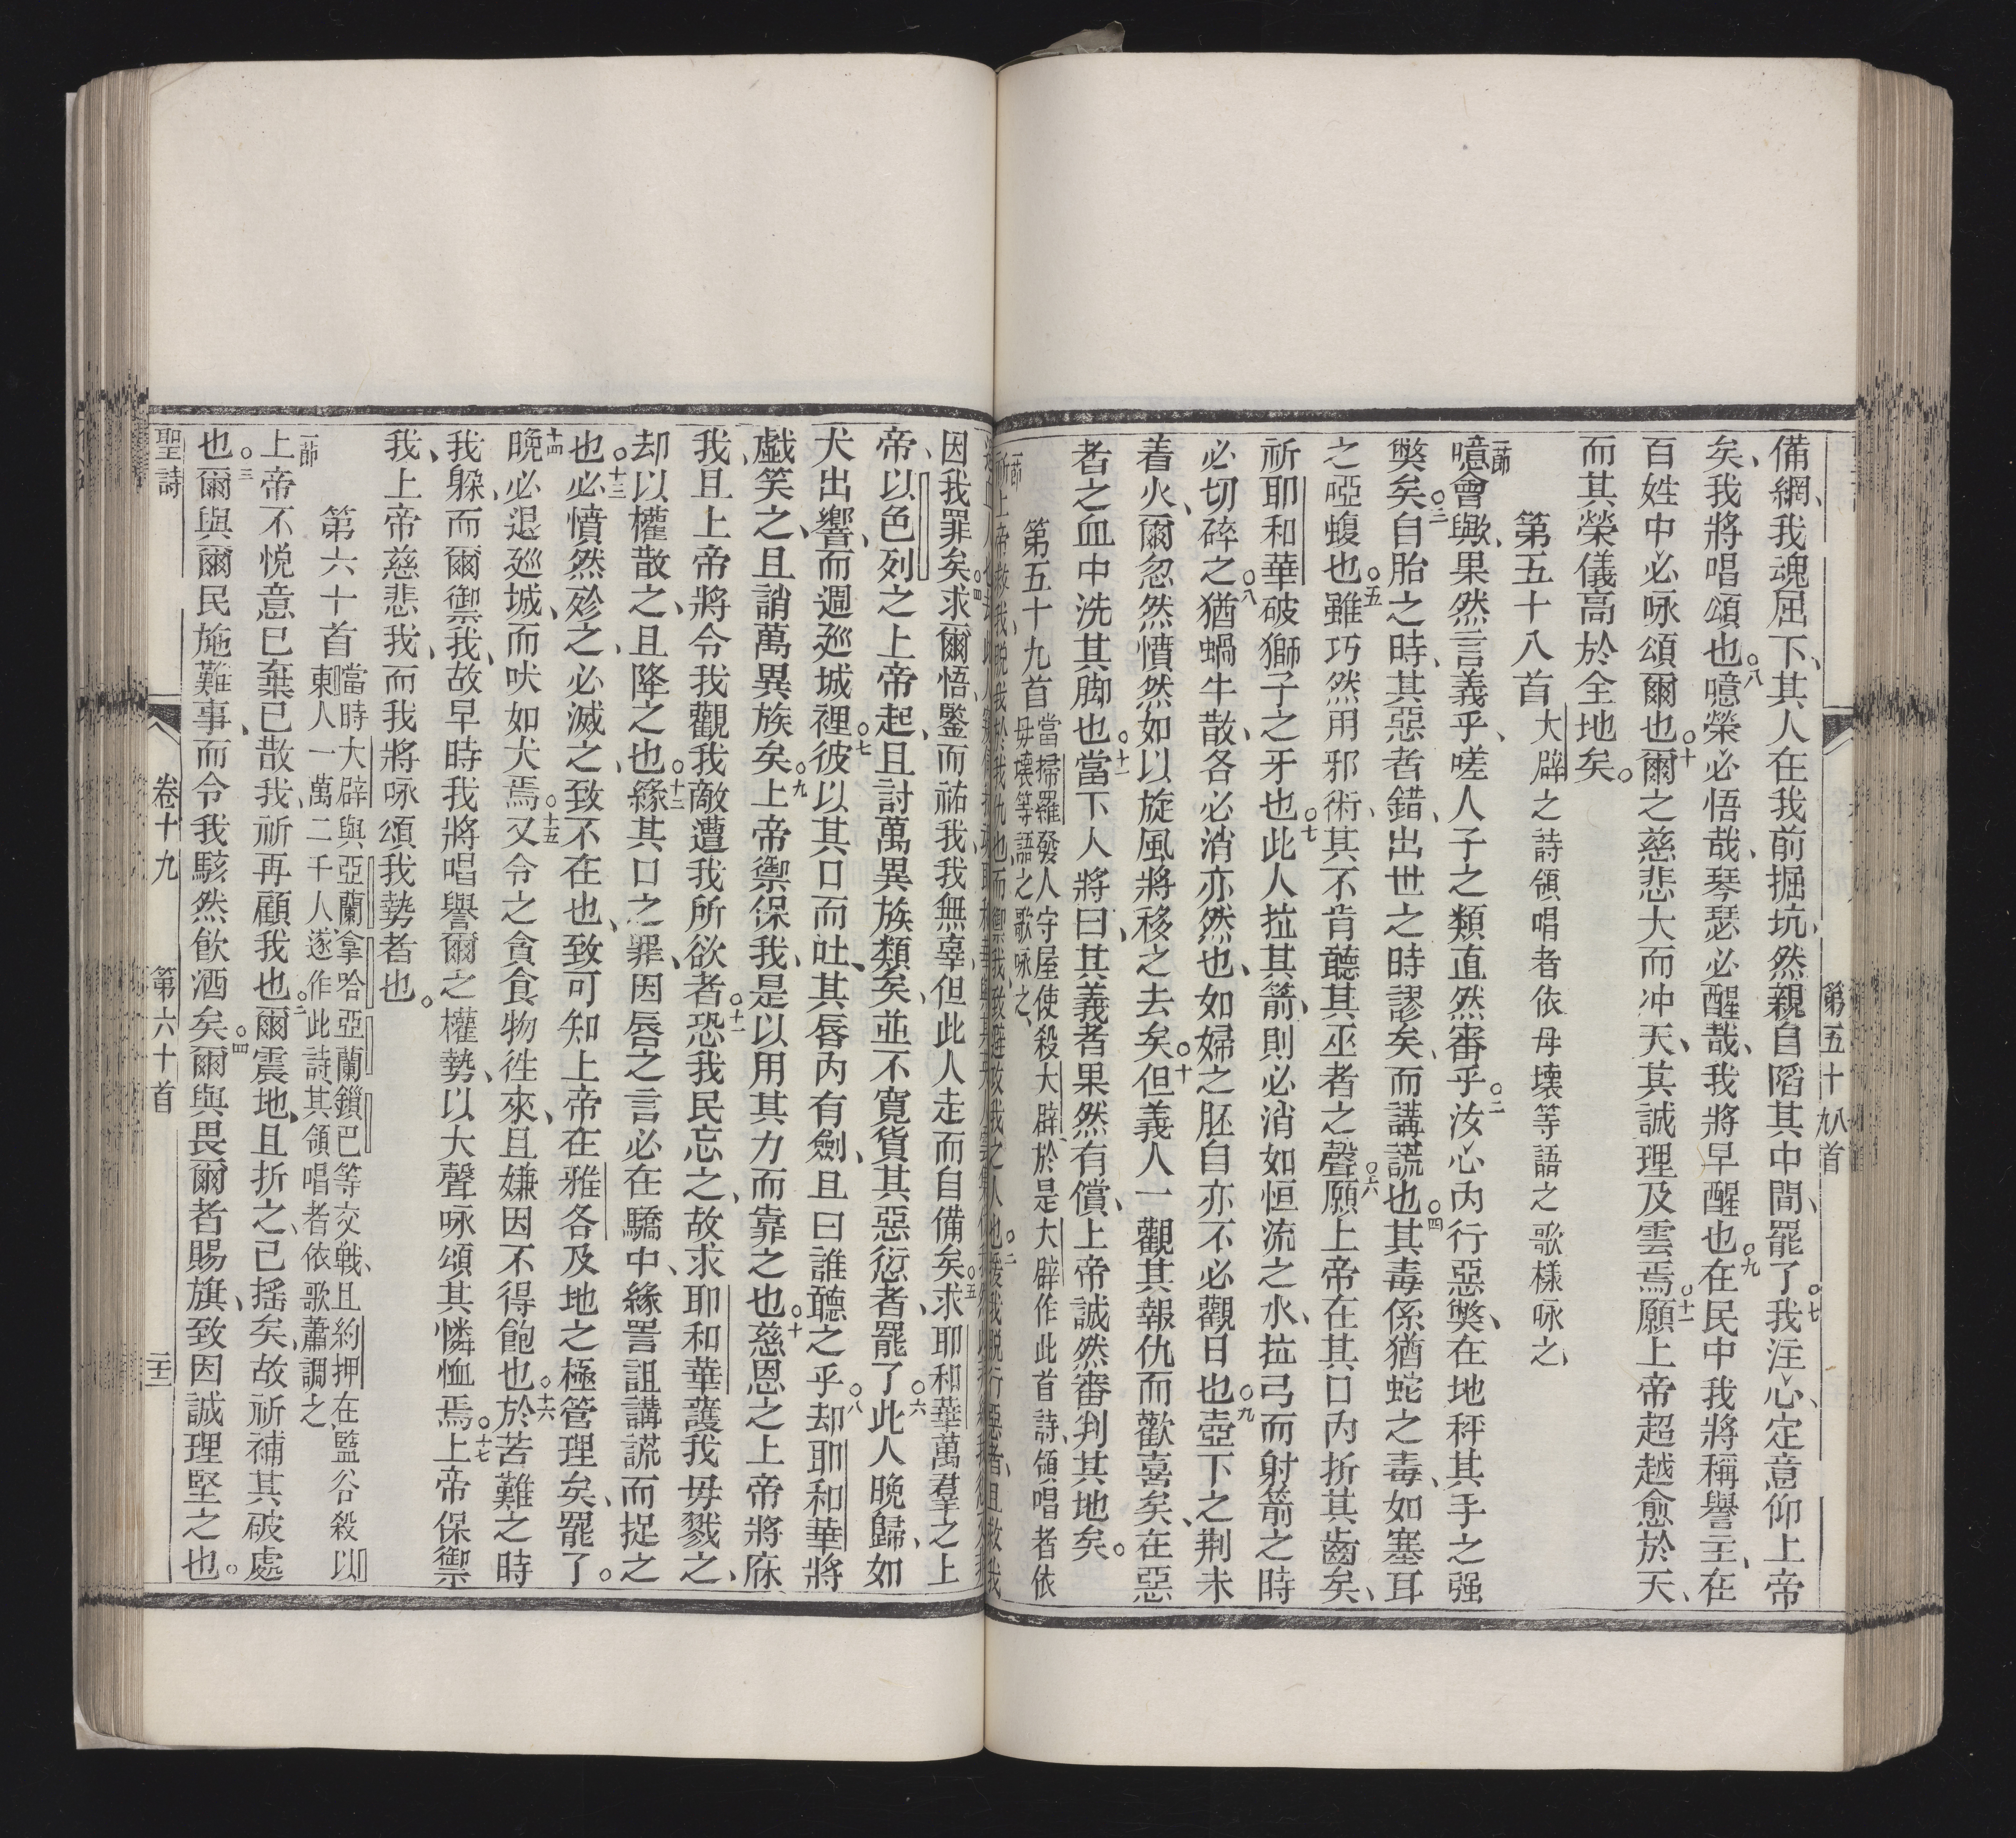 第五十八九首
備網、我魂屈下、其人在我前掘坑、然親自陷其中間、罷了。七我注心、定意仰上帝
矣、我將唱頌也。八噫榮必悟哉、琴瑟必醒哉、我將早醒也。九在民中我將稱譽主、在
百姓中必咏頌爾也。十爾之慈悲大而冲天、其誠理及雲焉。十一願上帝超越愈於天、
而其榮儀高於全地矣。
第五十八首 大辟之詩領唱者依毋壞等語之歌樣咏之、
一節噫會歟、果然言義乎、嗟人子之類直然審乎。二汝心內行惡獘、在地秤其手之强
獘矣。三自胎之時、其惡者錯、出世之時謬矣、而講謊也。四其毒係猶蛇之毒、如塞耳
之啞蝮也。五雖巧然用邪術、其不肯聽其巫者之聲。六願上帝在其口內折其齒矣、
祈耶和華破獅子之牙也。七此人拉其箭、則必消如恒流之水、拉弓而射箭之時
必切碎之。八猶蝸牛散、各必消亦然也、如婦之胚自亦不必觀日也。九壺下之荆未
着火、爾忽然憤然如以旋風將移之去矣。十但義人一觀其報仇而歡喜矣、在惡
者之血中洗其脚也。十一當下人將曰、其義者果然有償、上帝誠然審判其地矣。
第五十九首 當掃羅發人守屋使殺大辟、於是大辟作此首詩、領唱者依
毋壞等語之歌咏之、
因我罪矣。四求爾悟、鑒而祐我、我無辜、但此人走而自備矣。五求耶和華萬羣之上
帝、以色列之上帝起、且討萬異族類矣、並不寬貨其惡愆者、罷了。六此人晚歸、如
犬出響、而週廵城裡。七彼以其口而吐、其唇內有劍、且曰誰聽之乎。八却耶和華將
戲笑之、且誚萬異族矣。九上帝禦保我、是以用其力而靠之也。十慈恩之上帝將庥
我、且上帝將令我觀我敵遭我所欲者。十一恐我民忘之、故求耶和華護我毋戮之、
却以權散之、且降之也。十二緣其口之罪、因唇之言必在驕中、緣詈詛講謊而捉之
也。十三必憤然殄之、必滅之、致不在也、致可知上帝在雅各及地之極管理矣、罷了。
十四晚必退廵城、而吠如犬焉。十五又令之貪食物徃來、且嫌因不得飽也。十六於苦難之時
我躲、而爾禦我、故早時我將唱譽爾之權勢、以大聲咏頌其憐恤焉。十七上帝保禦
我、上帝慈悲我、而我將咏頌我勢者也。
第六十首 當時大辟與亞蘭拿哈亞蘭鎖巴等交戰、且約押在監谷殺以
東人一萬二千人、遂作此詩、其領唱者依歌蕭調之、
一節上帝不悅意已棄已散我、祈再顧我也。二爾震地、且折之、已搖矣、故祈補其破處
也。三爾與爾民施難事、而令我駭然飲酒矣。四爾與畏爾者賜旗、致因誠理堅之也。
聖詩 卷十九 第六十首